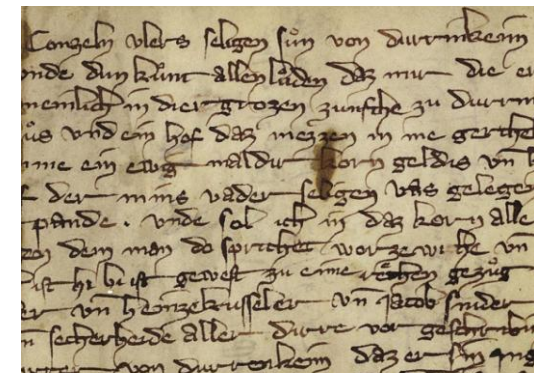 Conzeln vlers seligen sůn von durrinkeim
vnde dun kůnt allen lůden daz mir die er
meinlich in dier grozen zunfthe zu durrin
ůs vnd ein hof daz mezzen in me gerthe
nme ein ewig maldir korn geldis vn
der mins vader seligen vas gelegen
pande . vnde sol ich in daz korn alle
dem man do sprichet worzewiche vn
ist hi bi ist gewest zu eime rethen gezůg
vn heinzekusseler vn Jacob snider
secherheide aller dirre vor geschribin
von durrenkeim daz er sin